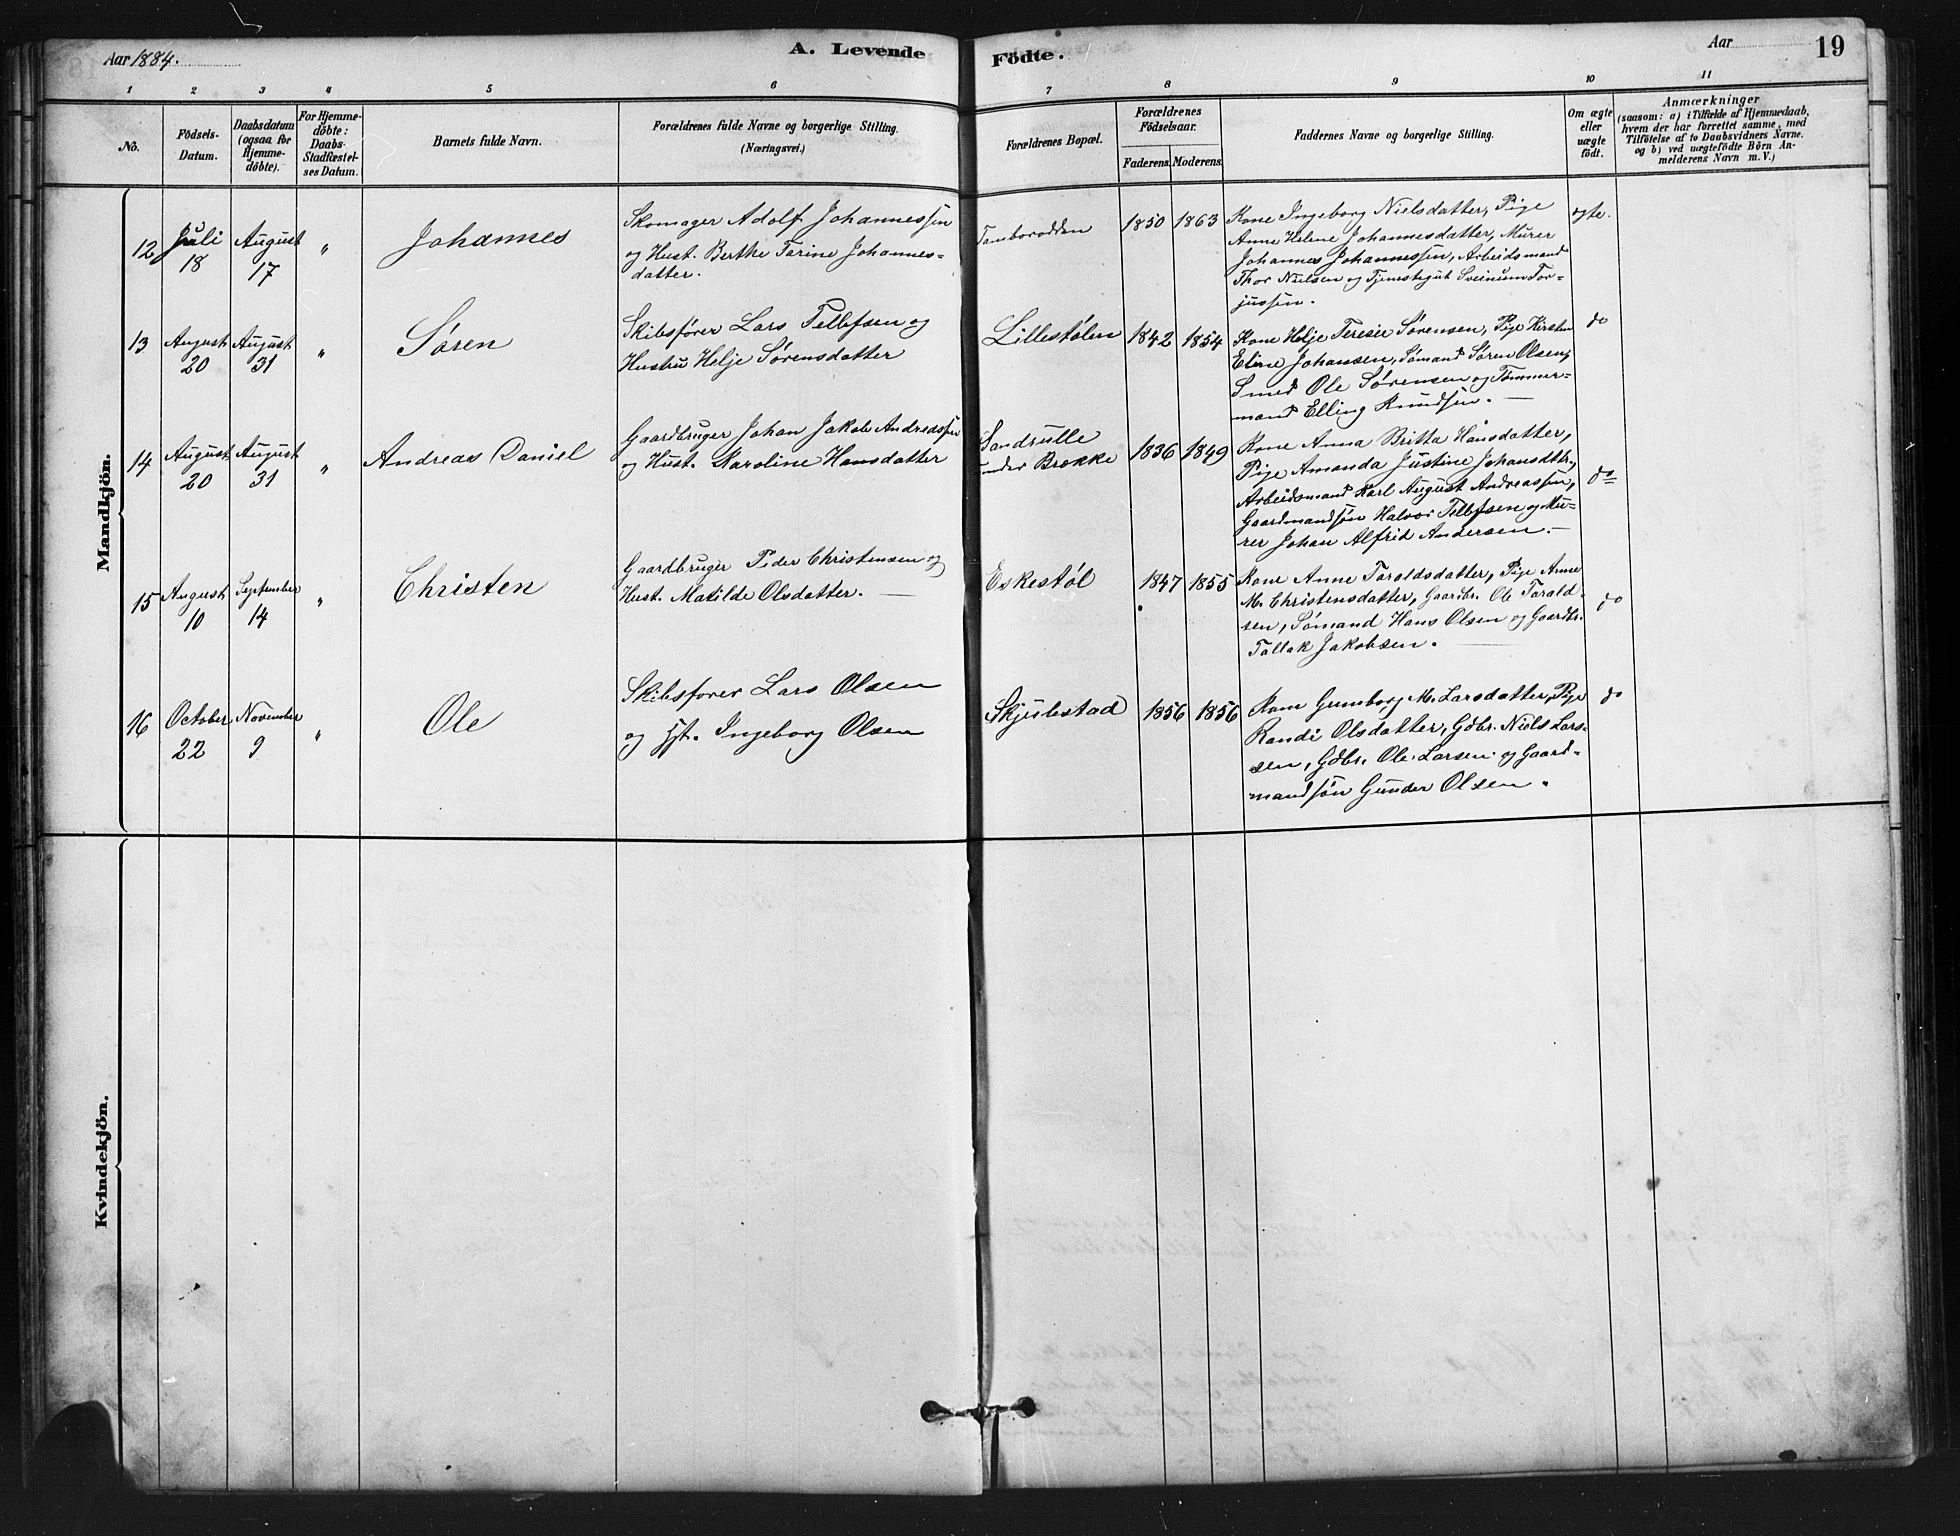 Aar 1884.
A. Levende Födte.
Aar
19
1 2 3 4 5 6 7 8 9 10 11
No.
Födsels-
Datum.
Daabsdatum
(ogsaa for
Hjemme-
döbte).
For Hjemme-
döbte:
Daabs-
Stadfæstel-
ses Datum.
Barnets fulde Navn.
Forældrenes fulde Navne og borgerlige Stilling.
(Næringsvei.)
Forældrenes Bopæl.
Forældrenes
Födselsaar.
Faderens. Moderens.
Faddernes Navne og borgerlige Stilling.
Om ægte
eller
uægte
født.
Anmærkninger
(saasom: a) i Tilfælde af Hjemmedaab,
hvem der har forrettet samme, med
Tilföielse af to Daabsvidners Navne.
og b) ved uægtefödte Börn An-
melderens Navn m. V.)
Mandkjön.
12
Juli
18
August
17
"
Johannes
Skomager Adolf Johannessen
og Hust. Berthe Tarine Johannes-
datter.
1850 1863
Kone Ingeborg Nielsdatter, Pige
Anne Helene Johannesdatter, Murer
Johannes Johannessen, Arbeidsmand
Thor Nielsen og Tjenestegut Sveinum Tor-
jussen.
egte.
13
August
20
August
31
"
Søren
Skibsfører Lars Tellefsen og
Hustru Helje Sørensdatter
Lillestølen
1842 1854
Kone Helje Teresie Sørensen, Pige Kirsten
Eline Johansen, Sømand Søren Olsen,
Smed Ole Sørensen og Tømmer-
mand Elling Knudsen.
do
14
August
20
August
31
"
Andreas Daniel
Gaardbruger Johan Jakob Andreassen
og Hust. Karoline Hansdatter
Sandrulle
under Brække
1836 1849
Kone Anna Britta Hansdatter,
Pige Amanda Justine Johansdtr.,
Arbeidsmand Karl August Andreassen,
Gaardmandsøn Halvor Tellefsen og Mu-
rer Johan Alfrid Andersen.
do
15
August
10
September
14
"
Christen
Gaardbruger Peder Christensen og
Hust. Matilde Olsdatter.
Eskestøl
1847 1855
Kone Anne Taraldsdatter, Pige Anne
M. Christensdatter, Gaardbr. Ole Tarald-
sen, Sømand Hans Olsen og Gaardbr.
Tallak Jakobsen.
do
16
October
22
November
9
"
Ole
Skibsfører Lars Olsen
og Hst. Ingeborg Olsen
Skjulestad
1856 1856
Kone Gunborg M. Larsdatter, Pige
Randi Olsdatter, Gdbr. Niels Lars-
sen, Gdbr. Ole Larsen og Gaard-
mandsøn Gunder Olsen.
do
Kvindekjön.